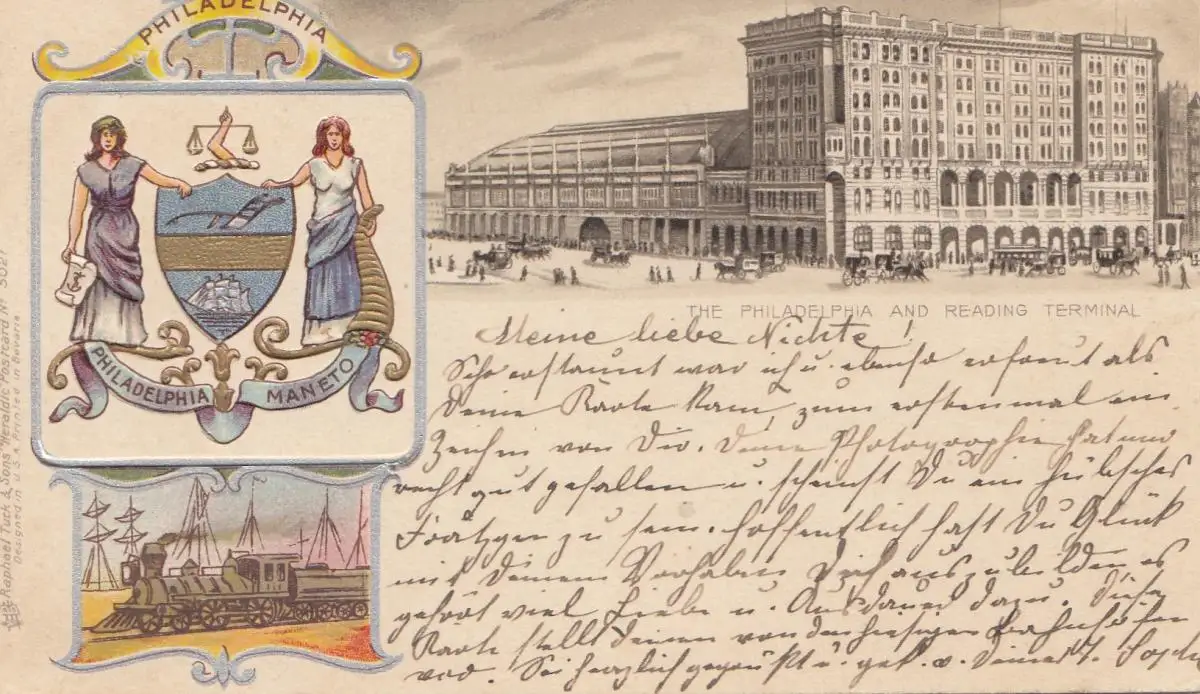 PHILADELPHIA
PHILADELPHIA MANETO
Raphael Tuck & Sons' Heraldic Postcard No 5027
Designed in U.S.A. Printed in Bavaria
THE PHILADELPHIA AND READING TERMINAL
Meine liebe Nichte!
Sehr erstaunt war ich u. ebenso erfreut als
Deine Karte kam, zum erstenmal ein
Zeichen von Dir. Deine Photographie hat uns
recht gut gefallen u. scheinst Du ein hübsches
zu sein. Hoffentlich hast Du Glück
mit Deinem Vorhaben Dich auszubilden, es
gehört viel Liebe u. Ausdauer dazu. Diese
Karte stellt einen von den hiesigen Bahnhöfen
vor. Sei herzlich gegrüßt u. gek. v. Deiner T.